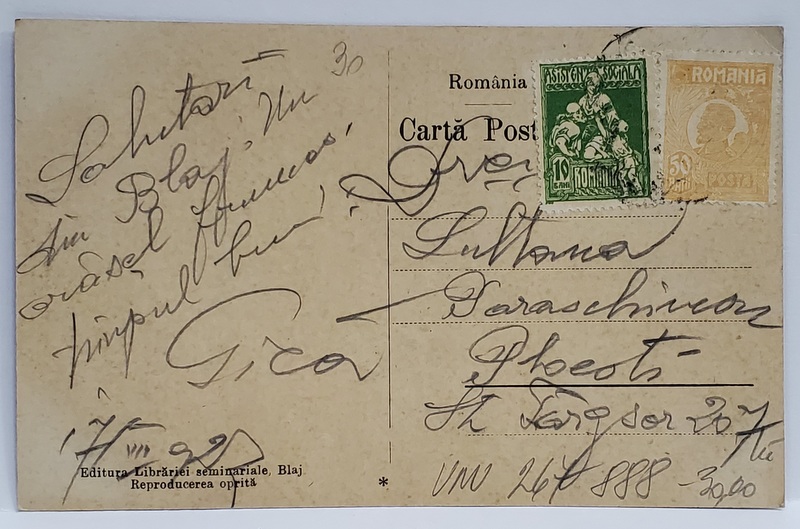 30
Salutări
din Blaj. Un
orășel frumos,
timpul bun,
Gică
17 VIII 927
Editura Librăriei seminariale, Blaj
Reproducerea oprită
*
România
Cartă Post
ASISTENȚA SOCIALĂ
10
BANI
ROMANIA
ROMANIA
50
POSTA
Sultana
Paraschivescu
Ploești
St. Târgșor 207
267 888 -30,00